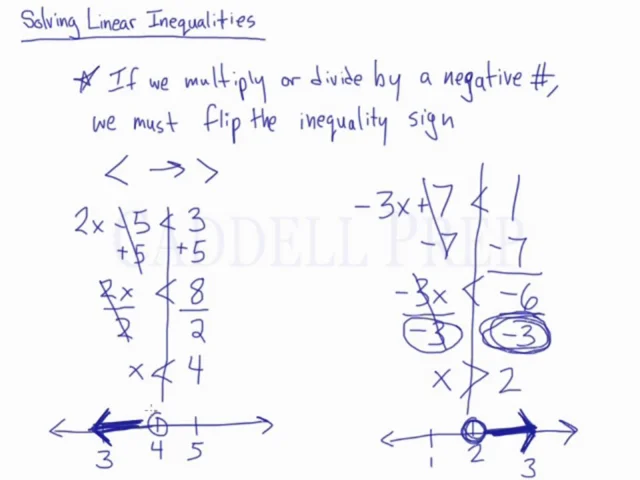 Solving Linear Inequalities
* If we multiply or divide by a negative #,
we must flip the inequality sign
< → >
2x - 5 < 3
+5 +5
2x < 8
2 2
x < 4
3 4 5
-3x + 7 < 1
-7 -7
-3x < -6
-3 -3
x > 2
1 2 3
CADDELL PREP